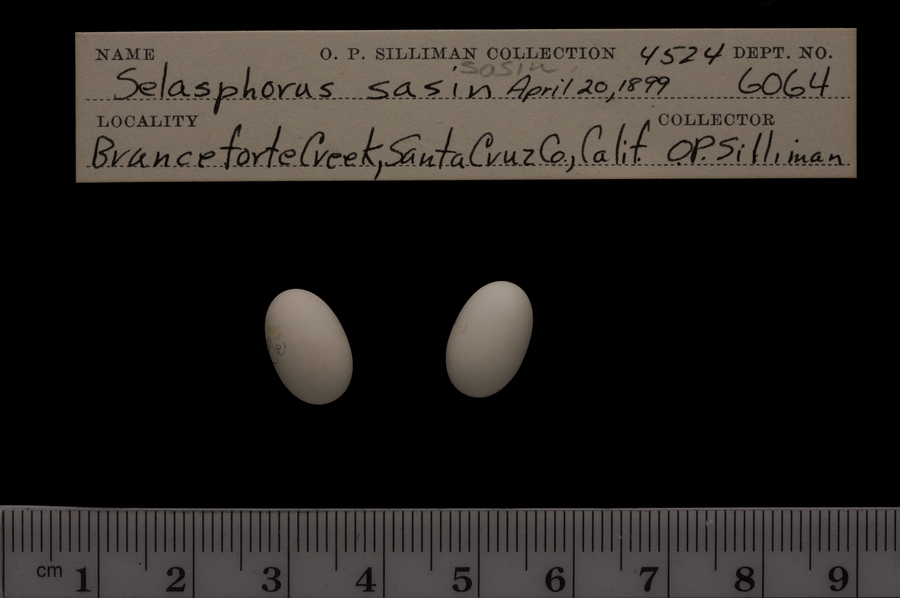 NAME O. P. SILLIMAN COLLECTION 4524 DEPT. NO.
sasin
Selasphorus sasin April 20, 1899 6064
LOCALITY COLLECTOR
Branceforte Creek, Santa Cruz Co., Calif. O.P. Silliman
cm 1 2 3 4 5 6 7 8 9